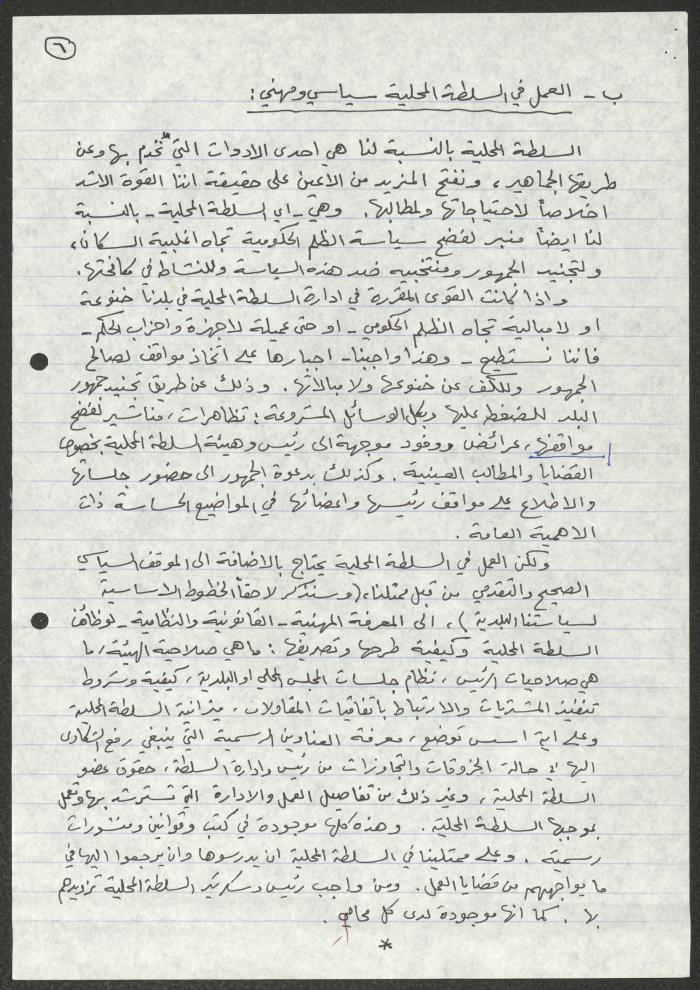 ٦
ب - العمل في السلطة المحلية سياسي ومهني:
السلطة المحلية بالنسبة لنا هي احدى الادوات التي نخدم بها وعن
طريقها الجماهير، ونفتح المزيد من الاعين على حقيقة اننا القوة الاشد
اخلاصاً لاحتياجاتها ولمطالبها. وهي - اي السلطة المحلية - بالنسبة
لنا ايضاً منبر لفضح سياسة الظلم الحكومية تجاه اغلبية السكان،
ولتجنيد الجمهور ومنتخبيه ضد هذه السياسة وللنشاط في مكافحتها.
واذا كانت القوى المقررة في ادارة السلطة المحلية في بلدنا خنوعة
او لامبالية تجاه الظلم الحكومي - او حتى عميلة لاجهزة واحزاب الحكم -
فاننا نستطيع - وهذا واجبنا - اجبارها على اتخاذ مواقف لصالح
الجمهور وللكف عن خنوعها ولا مبالاتها. وذلك عن طريق تجنيد جمهور
البلد للضغط عليها وبكل الوسائل المشروعة: تظاهرات، مناشير لفضح
مواقفها، عرائض ووفود موجهة الى رئيس وهيئة السلطة المحلية بخصوص
القضايا والمطالب العينية. وكذلك بدعوة الجمهور الى حضور جلساتها
والاطلاع على مواقف رئيسها واعضائها في المواضيع الحساسة ذات
الاهمية العامة.
ولكن العمل في السلطة المحلية يحتاج بالاضافة الى الموقف السياسي
الصحيح والتقدمي من قبل ممثلنا، (وسنذكر لاحقاً الخطوط الاساسية
لسياستنا البلدية)، الى المعرفة المهنية - القانونية والنظامية - لوظائف
السلطة المحلية وكيفية طرحها وتصريفها: ما هي صلاحية الهيئة، ما
هي صلاحيات الرئيس، نظام جلسات المجلس المحلي او البلدية، كيفية وشروط
تنفيذ المشتريات والارتباط باتفاقيات المقاولات، ميزانية السلطة المحلية
وعلى اية اسس توضع، معرفة العناوين الرسمية التي ينبغي رفع الشكاوى
اليها في حالة الخروقات والتجاوزات من رئيس وادارة السلطة، حقوق عضو
السلطة المحلية، وغير ذلك من تفاصيل العمل والادارة التي تسترشد بها وتعمل
بموجبها السلطة المحلية. وهذه كلها موجودة في كتب وقوانين ومنشورات
رسمية. وعلى ممثلينا في السلطة المحلية ان يدرسوها وان يرجعوا اليها في
ما يواجههم من قضايا العمل. ومن واجب رئيس وسكرتير السلطة المحلية تزويدهم
بها. كما انها موجودة لدى كل محامي.
*